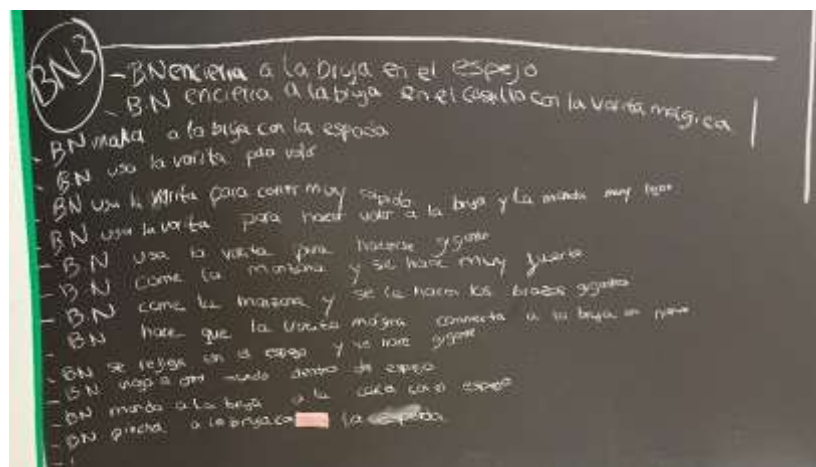 BN3
- BN encierra a la bruja en el espejo
- BN encierra a la bruja en el castillo con la varita mágica
- BN mata a la bruja con la espada
- BN usa la varita para volar
- BN usa la varita para correr muy rápido
- BN usa la varita para hacer volar a la bruja y la manda muy lejos
- BN usa la varita para hacerse gigante
- BN come la manzana y se hace muy fuerte
- BN come la manzana y se le hacen los brazos gigantes
- BN hace que la varita mágica convierta a la bruja en
- BN se refleja en el espejo y se hace gigante
- BN viaja a otro mundo dentro de espejo
- BN manda a la bruja a la con el espejo
- BN pincha a la bruja con la espada